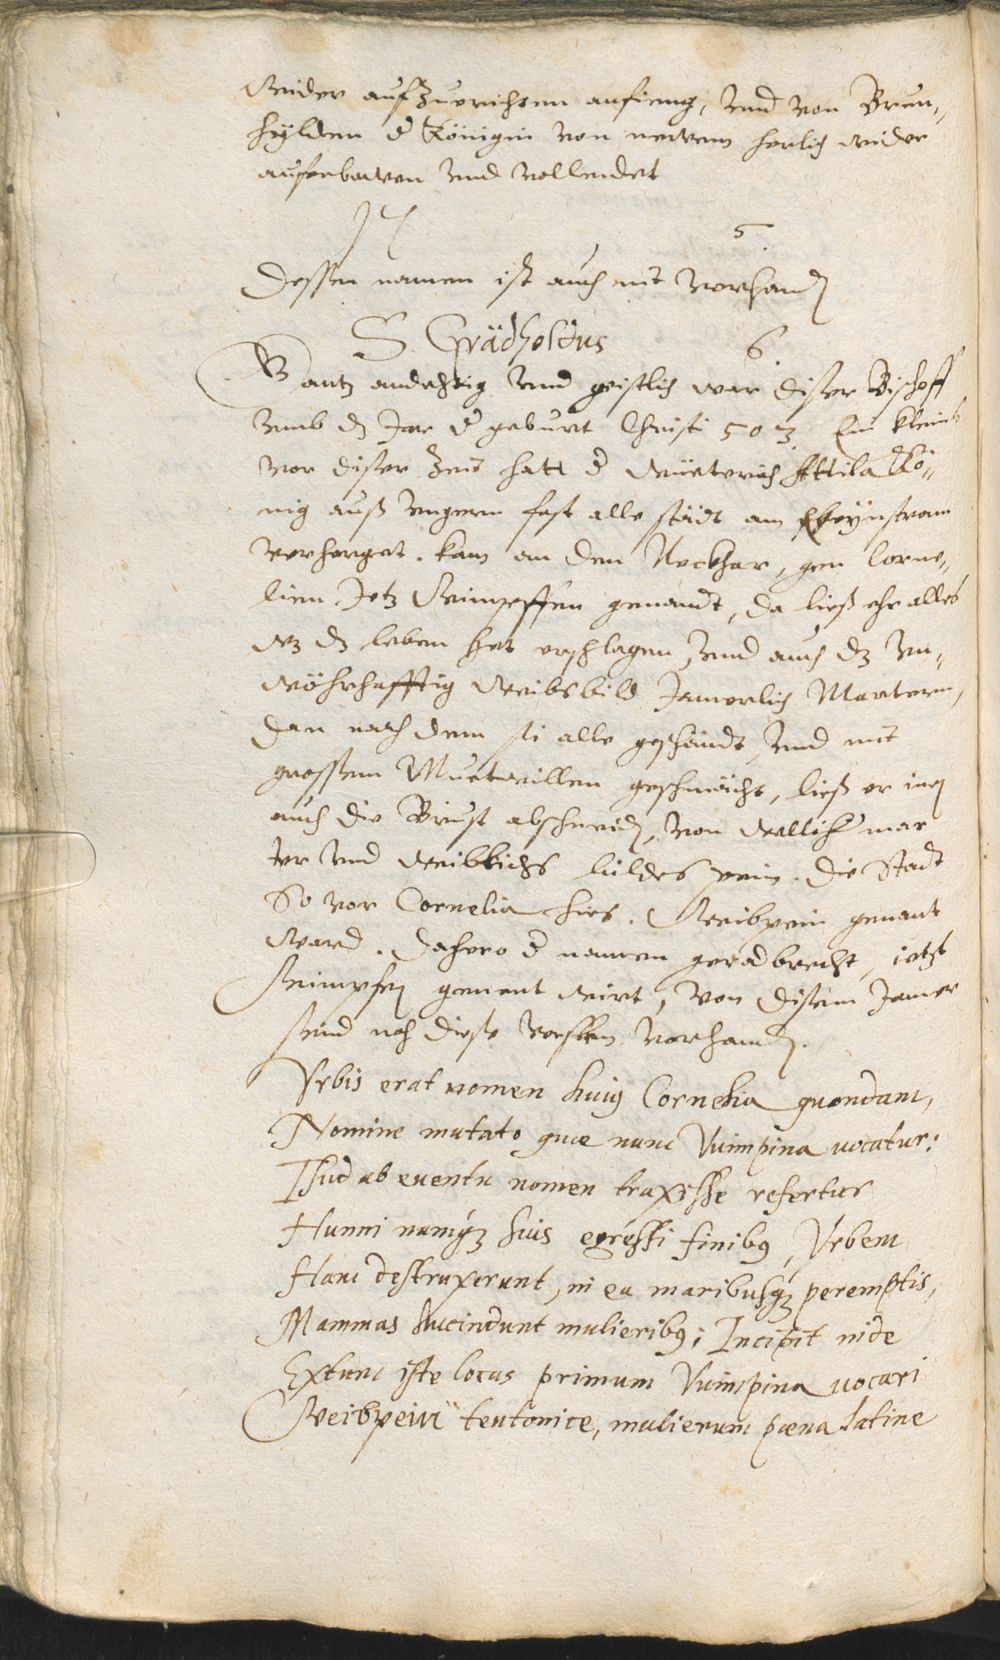 Wider aufzuerichten anfieng, vnd von Brun„
hylden d Königin von newem herlich wider
auferbawen vnd vollendet
N 5
Dessen namen ist auch nit vorhand
S. Grädholdus 6
Gantz andechtig vnd geistlich war diser Bischoff
vmb dz Jar d geburt Christi 503 Ein klein
vor diser Zeit hatt d Wüeterich Attila Kö„
nig auß Vngern fast alle städt am Rheynstrom
verherget. kam an den Neckhar, gen Corne„
lien Jetz Wimpffen genandt, da ließ ehr alles
wz dz leben het erschlagen, vnd auch dz vn„
wöhrhafftig Weibsbild Jamerlich Martern,
dan nach dem si alle geschändt, vnd mit
grossem Muetwillen geschwächt, ließ er inen
auch die Brüst abschneiden, von wellicher mar
ter vnd Weiblichs bildes pein. die Stadt
So vor Cornelia hies. Weibpein genant
Ward. dahero d namen geradbrecht, ietzt
Wimpfen genent wirt, von disem Jamer
seind noch diese versken vorhanden.
Vrbis erat nomen huius Cornelia quondam,
Nomine mutato quae nunc Vuimpina uocatur:
Istud ab euentu nomen traxisse refertur
Hunni namq3 suis egressi finibus, Vrbem
Hanc destruxerunt, in ea maribusq3 peremptis,
Mammas succindunt mulieribus; Incipit inde
Extunc iste locus primum Vuimpina uocari
Weibpein teutonice, mulierum pœna latine